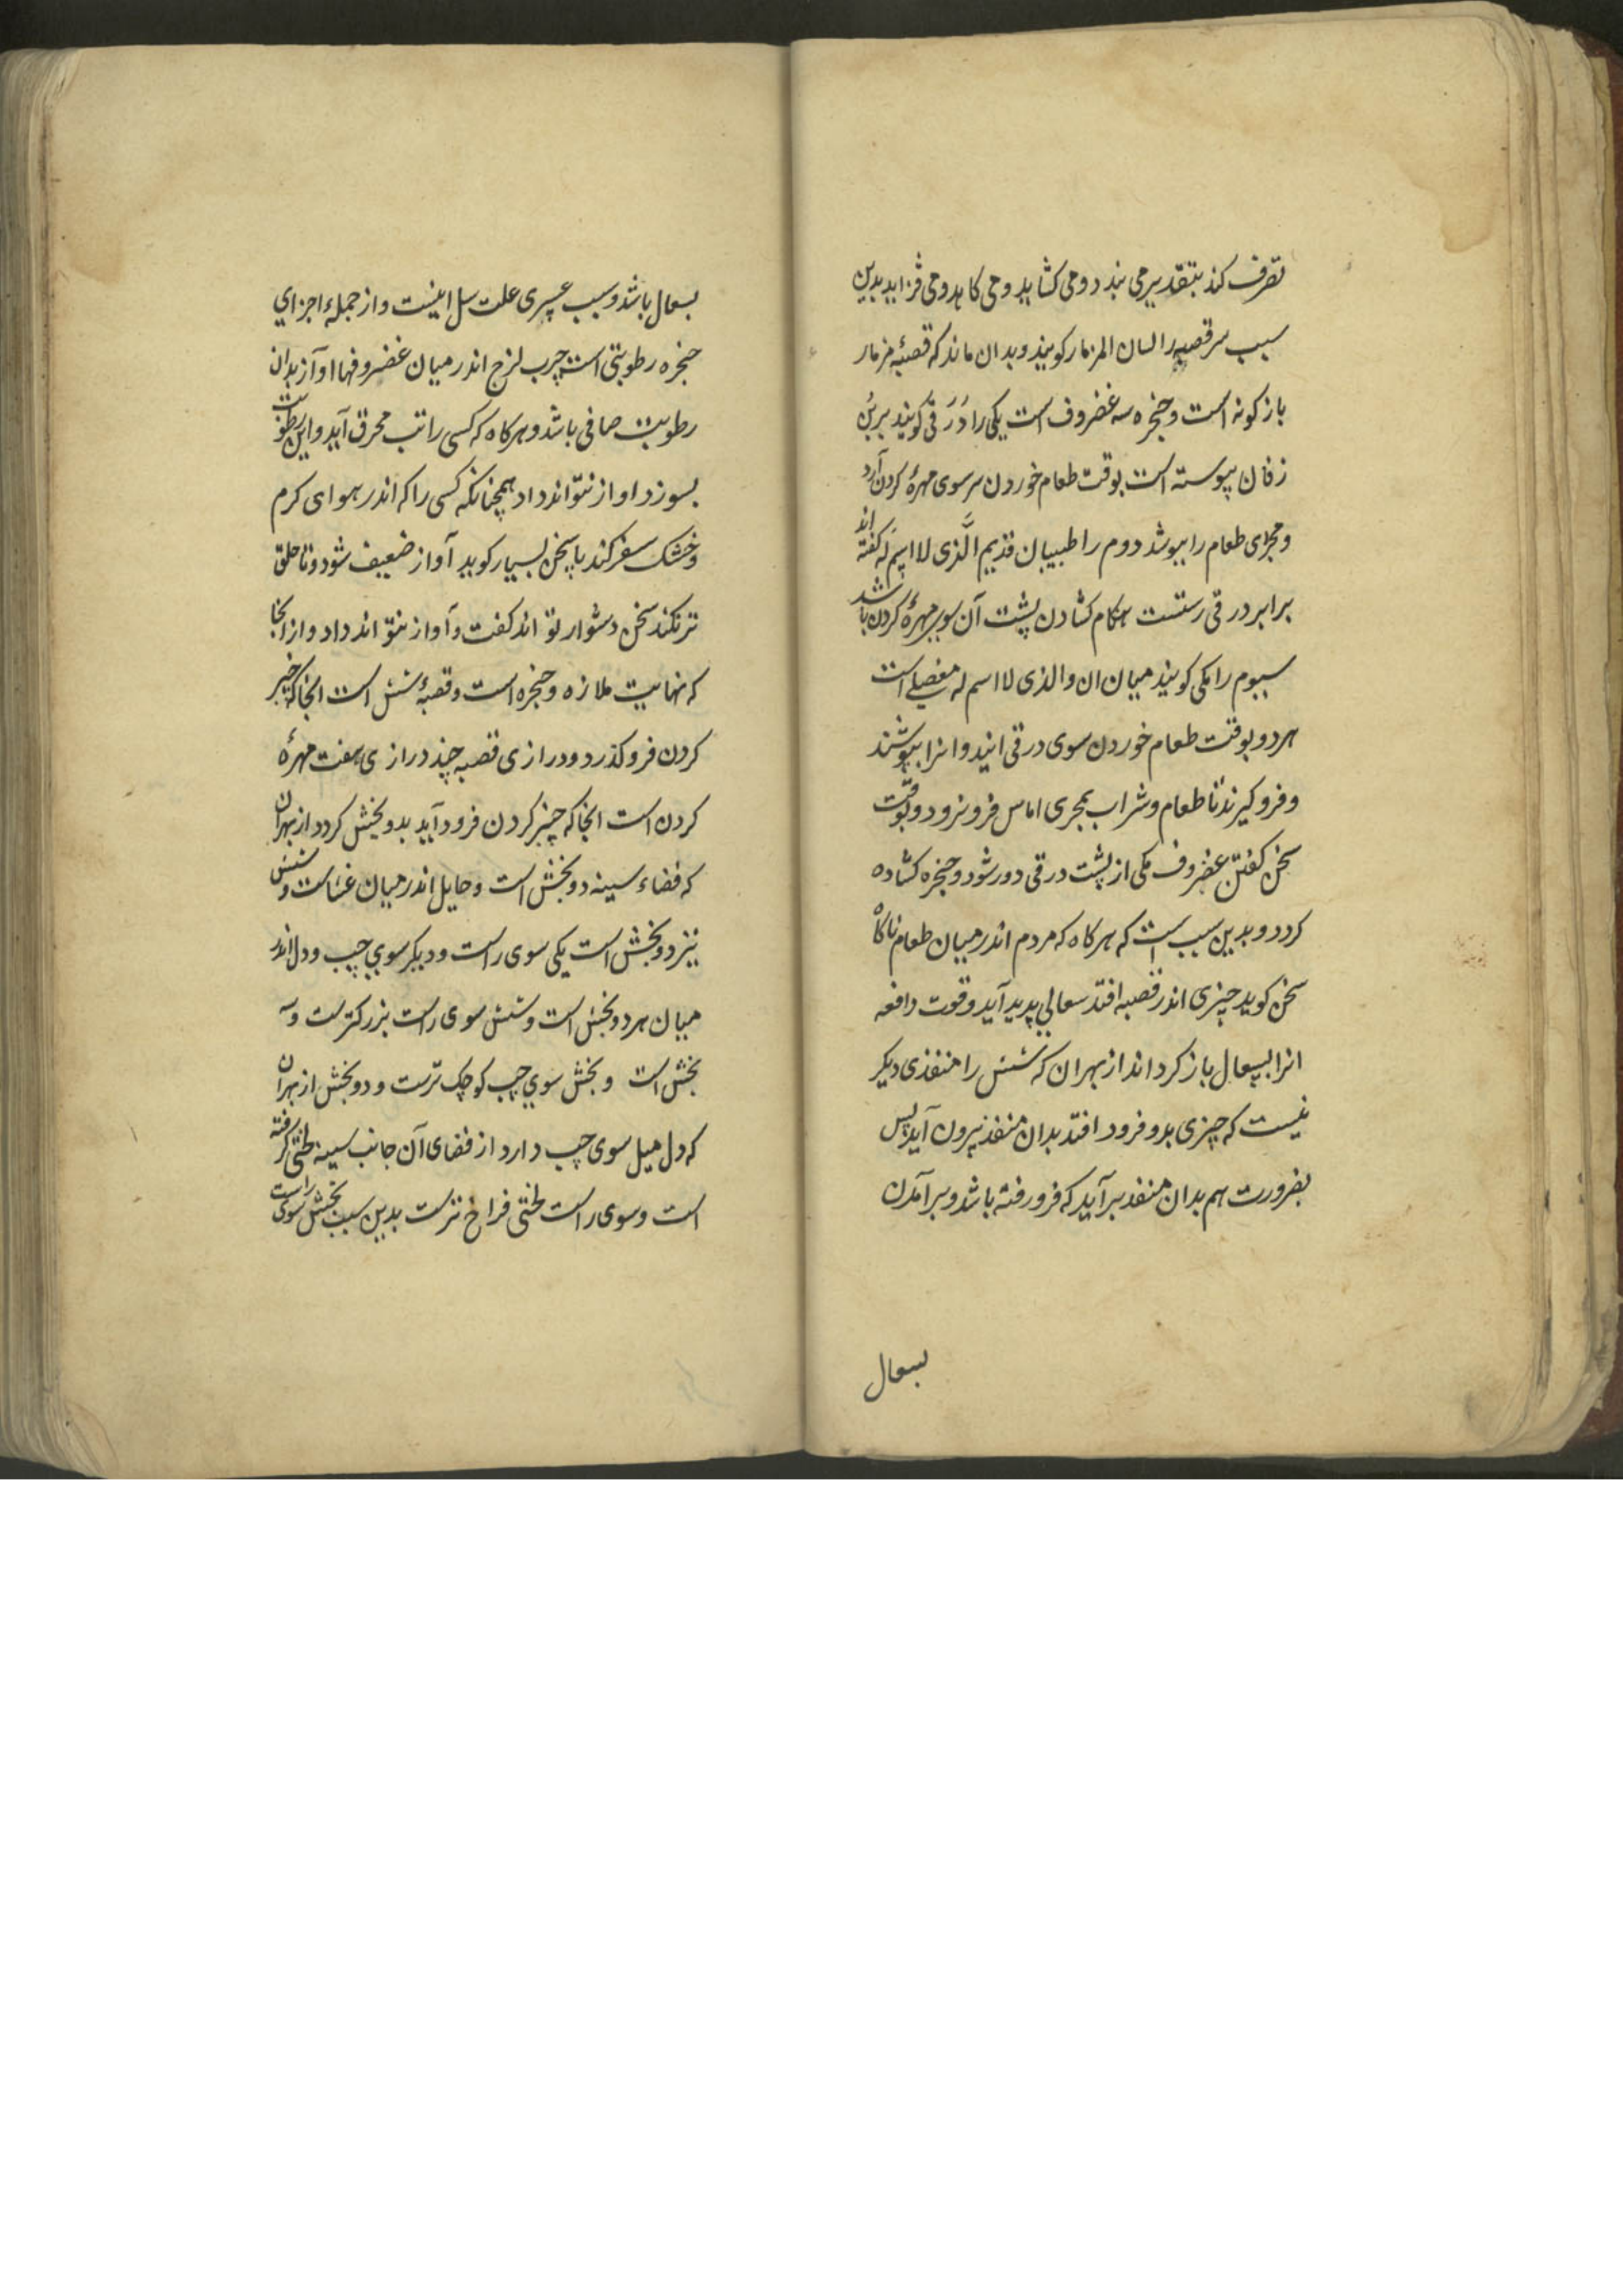 تصرف کند بتقدیر می بندد و می کشاید و می کاهد و می فزاید بدین
سبب سر قصبه را لسان المزمار کویند و بدان ماند که قصبهٔ مزمار
باز کونه است و حنجره سه غضروف است یکی را دَرَقی کویند بر بُن
زفان پیوسته است بوقت طعام خوردن سر سوی مهرهٔ کردن آرد
و مجرای طعام را بپوشد دوم را طبیبان قدیم الَّذی لا اسم لَه کفته اند
برابر درقی رستست هنکام کشادن پشت آن سوی مهرهٔ کردن باشد
سیوم را مکی کویند میان ان والذی لا اسم له مفصلی است
هر دو بوقت طعام خوردن سوی درقی ایند و انرا بپوشند
و فرو کیرند تا طعام و شراب بمجری اماس فرو نرود و بوقت
سخن کفتن غضروف مکی از پشت درقی دور شود و حنجره کشاده
کردد و بدین سبب است که هر کاه که مردم اندر میان طعام ناکاه
سخن کوید چیزی اندر قصبه افتد سعالی پدید آید و قوت دافعه
انرا بسعال باز کرداند از بهر ان که شش را منفذی دیکر
نیست که چیزی بدو فرود افتد بدان منفذ بیرون آید پس
بضرورت هم بدان منفذ بر آید که فرو رفته باشد و بر آمدن
بسعال
بسعال باشد و سبب عسری علت سل اینست و از جملهٔ اجزای
حنجره رطوبتی است چرب لزج اندر میان غضروفها اواز بدان
رطوبت صافی باشد و هر کاه که کسی را تب محرق آید و این رطوبت
بسوزد اواز نتواند داد همچنانکه کسی را که اندر هوای کرم
و خشک سفر کند یا سخن بسیار کوید آواز ضعیف شود و تا حلق
تر نکند سخن دشوار تواند کفت و آواز نتواند داد و از انجا
که نهایت ملازه و حنجره است و قصبهٔ شش است انجا که چنبر
کردن فرو کذرد و درازی قصبه چند درازی هفت مهرهٔ
کردن است انجا که چنبر کردن فرود آید بدو بخش کردد از بهر ان
که فضاء سینه دو بخش است و حایل اندر میان غشاست و شش
نیز دو بخش است یکی سوی راست و دیکر سوی چپ و دل اندر
میان هر دو بخش است و شش سوی راست بزرکترست و سه
بخش است و بخش سوی چپ کوچک ترست و دو بخش از بهر ان
که دل میل سوی چپ دارد از فضای آن جانب سینه لختی کرفته
است و سوی راست لختی فراخ ترست بدین سبب بخش سوی راست